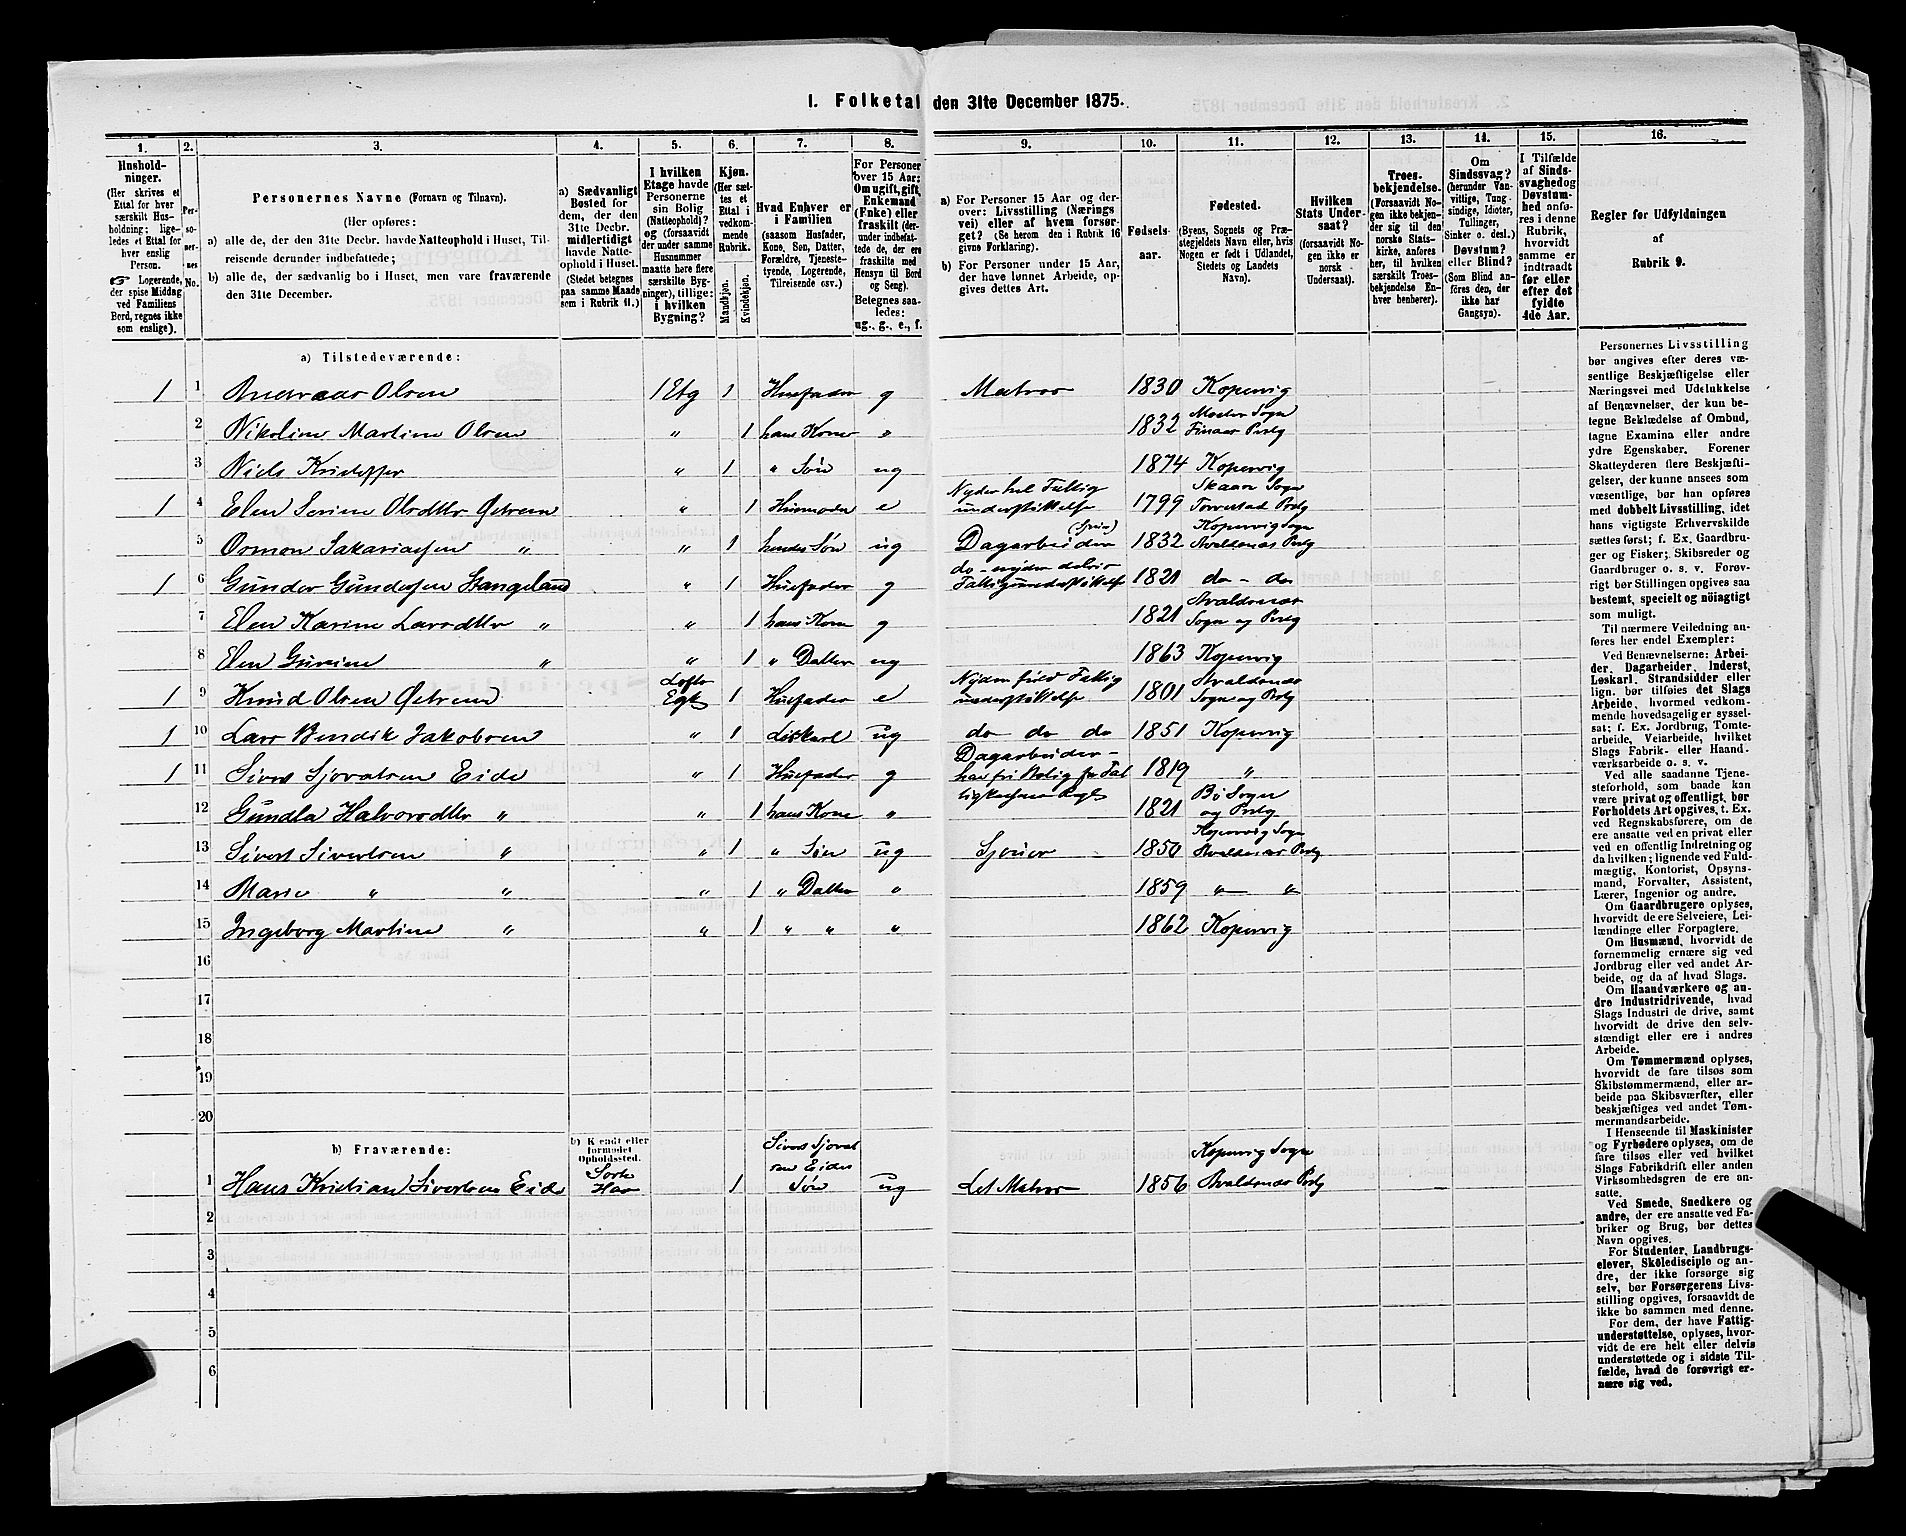 1. Folketal den 31te December 1875.
1. 2. 3. 4. 5. 6. 7. 8. 9. 10. 11. 12. 13. 14. 15. 16.
Husholdninger.
(Her skrives et
Ettal for hver
særskilt Husholdning;
ligeledes
et Ettal for
hver enslig
Person.
☞ Logerende,
der spise Middag
ved Familiens
Bord, regnes ikke
som enslige).
Personernes
No.
Personernes Navne (Fornavn og Tilnavn).
(Her opføres:
a) alle de, der den 31te Decbr. havde Natteophold i Huset, Tilreisende
derunder indbefattede;
b) alle de, der sædvanlig bo i Huset, men vare fraværende
den 31te December.
a) Sædvanligt
Bosted for
dem, der den
31te Decbr.
midlertidigt
havde Natteophold
i Huset.
(Stedet betegnes
paa samme Maade
som i Rubrik 11.)
I hvilken
Etage havde
Personerne
sin Bolig
(Natteophold)?
og (forsaavidt
der under samme
Husnummer
maatte høre flere
særskilte Bygninger),
tillige:
i hvilken
Bygning?
Kjøn.
(Her sættes
et
Ettal i
vedkommende
Rubrik.
Mandkjøn.
Kvindekjøn.
Hvad Enhver er
i Familien
(saasom Husfader,
Kone, Søn, Datter,
Forældre, Tjenestetyende,
Logerende,
Tilreisende osv.)
For Personer
over 15 Aar:
Om ugift, gift,
Enkemand
(Enke) eller
fraskilt (derunder
indbefattede
de, der ere
fraskilte med
Hensyn til Bord
og Seng).
Betegnes saaledes:
ug., g., e., f.
a) For Personer 15 Aar og derover:
Livsstilling (Næringsvei)
eller af hvem forsørget?
(Se herom den i Rubrik 16
givne Forklaring).
b) For Personer under 15 Aar,
der have lønnet Arbeide, opgives
dettes Art.
Fødselsaar.
Fødested.
(Byens, Sognets og Præstegjeldets
Navn eller, hvis
Nogen er født i Udlandet,
Stedets og Landets
Navn).
Hvilken
Stats Undersaat?
(forsaavidt Nogen
ikke er
norsk
Undersaat).
Troesbekjendelse.
(Forsaavidt Nogen
ikke bekjender
sig til den
norske Statskirke,
anføres
her, til hvilken
særskilt Troesbekjendelse
Enhver
henhører).
Om
Sindssvag?
(herunder Vanvittige,
Tungsindige,
Idioter,
Tullinger,
Sinker o. desl.)
Døvstum?
eller Blind?
(Som Blind anføres
den, der
ikke har
Gangsyn).
I Tilfælde
af Sindssvaghed
og
Døvstumhed
anføres
i denne
Rubrik,
hvorvidt
samme er
indtraadt
før eller
efter det
fyldte
4de Aar.
Regler for Udfyldningen
af
Rubrik 9.
a) Tilstedeværende:
1 1 Andreas Olsen 1 Etg 1 Husfader g Matros 1830 Kopervig
2 Nikoline Martine Olsen „ 1 hans Kone „ 1832 Moster Sogn
Finaas Prstg
3 Niels Kristoffer „ 1 „ Søn ug 1874 Kopervig
1 4 Elen Serine Olsdttr Østrem „ 1 Husmoder e Nyder hel Fattig
understøttelse 1799 Skaare Sogn
Torvestad Prstg
5 Osmon Sakariassen „ „ 1 hendes Søn ug Dagarbeider 1832 Kopervig Sogn
Avaldsnæs Prstg
1 6 Gunder Gundersen Stangeland „ 1 Husfader g do – nyder delvis
Fattigunderstøttelse 1821 do – do
7 Elen Karine Larsdttr „ „ 1 hans Kone g 1821 Avaldsnæs
Sogn og Prstg
8 Elen Gurine „ „ 1 „ Datter ug 1863 Kopervig
1 9 Knud Olsen Østrem Lofts
Etg 1 Husfader e Nyder fuld Fattig
understøttelse 1801 Avaldsnæs
Sogn og Prstg
1 10 Lars Bendik Jakobsen „ 1 Løskarl ug do do do 1851 Kopervig
1 11 Sivert Sjovatsen Eide „ 1 Husfader g Dagarbeider –
har fri Bolig fra Fat 1819 „
12 Gundla Halvorsdttr „ „ 1 hans Kone „ 1821 Bø Sogn
og Prstg
13 Sivert Sivertsen „ „ 1 „ Søn ug Sjouer 1850 Kopervig Sogn
Avaldsnæs Prstg
14 Marie „ „ „ 1 „ Datter „ 1859 „ „
15 Ingeborg Martine „ „ 1 „ „ „ 1862 Kopervig
16
17
18
19
20
b) Fraværende:
b) Kjendt eller
formodet
Opholdssted.
1 Hans Kristian Sivertsen Eide Sorte
Hav 1 Sivert Sjovat
sen Eides
Søn ug Let Matros 1856 Kopervig Sogn
Avaldsnæs Prstg
2
3
4
5
6
Personernes Livsstilling
bør angives efter deres væsentlige
Beskjæftigelse eller
Næringsvei med Udelukkelse
af Benævnelser, der kun betegne
Beklædelse af Ombud,
tagne Examina eller andre
ydre Egenskaber. Forener
Skatteyderen flere Beskjæftigelser,
der kunne ansees som
væsentlige, bør han opføres
med dobbelt Livsstilling, idet
hans vigtigste Erhvervskilde
sættes først; f. Ex. Gaardbruger
og Fisker; Skibsreder og
Gaardbruger o. s. v. Forøvrigt
bør Stillingen opgives saa
bestemt, specielt og nöiagtigt
som muligt.
Til nærmere Veiledning anføres
her endel Exempler:
Ved Benævnelserne: Arbeider,
Dagarbeider, Inderst,
Løskarl, Strandsidder eller
lign. bør tilføies det Slags
Arbeide, hvormed vedkommende
hovedsagelig er sysselsat;
f. Ex. Jordbrug, Tomtearbeide,
Veiarbeide, hvilket
Slags Fabrik- eller Haandværksarbeide
o. s. v.
Ved alle saadanne Tjenesteforhold,
som baade kan
være privat og offentligt, bør
Forholdets Art opgives, t. Ex.
ved Regnskabsførere, om de
ere ansatte ved en privat eller
ved en offentlig Indretning og
da hvilken; lignende ved Fuldmægtig,
Kontorist, Opsynsmand,
Forvalter, Assistent,
Lærer, Ingeniør og andre.
Om Gaardbrugere oplyses,
hvorvidt de ere Selveiere, Leilændinge
eller Forpagtere.
Om Husmænd, hvorvidt de
fornemmelig ernære sig ved
Jordbrug eller ved andet Arbeide,
og da af hvad Slags.
Om Haandværkere og andre
Industridrivende, hvad
Slags Industri de drive, samt
hvorvidt de drive den selvstændigt
eller ere i andres
Arbeide.
Om Tømmermænd oplyses,
hvorvidt de fare tilsøs som
Skibstømmermænd, eller arbeide
paa Skibsværfter, eller
beskjæftiges ved andet Tømmermandsarbeide.
I Henseende til Maskinister
og Fyrbødere oplyses, om de
fare tilsøs eller ved hvilket
Slags Fabrikdrift eller anden
Virksomhedsgren de ere ansatte.
Ved Smede, Snedkere og
andre, der ere ansatte ved Fabriker
og Brug, bør dettes
Navn opgives.
For Studenter, Landbrugselever,
Skoledisciple og andre,
der ikke forsørge sig
selv, bør Forsørgerens Livsstilling
opgives, forsaavidt de
ikke bo sammen med denne.
For dem, der have Fattigunderstøttelse,
oplyses, hvorvidt
de ere helt eller delvis
understøttede og i sidste Tilfælde,
hvad de forøvrigt ernære
sig ved.